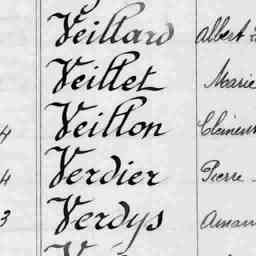 Veillard Albert
Veillet Marie
4 Veillon
4 Verdier Pierre
3 Verdys